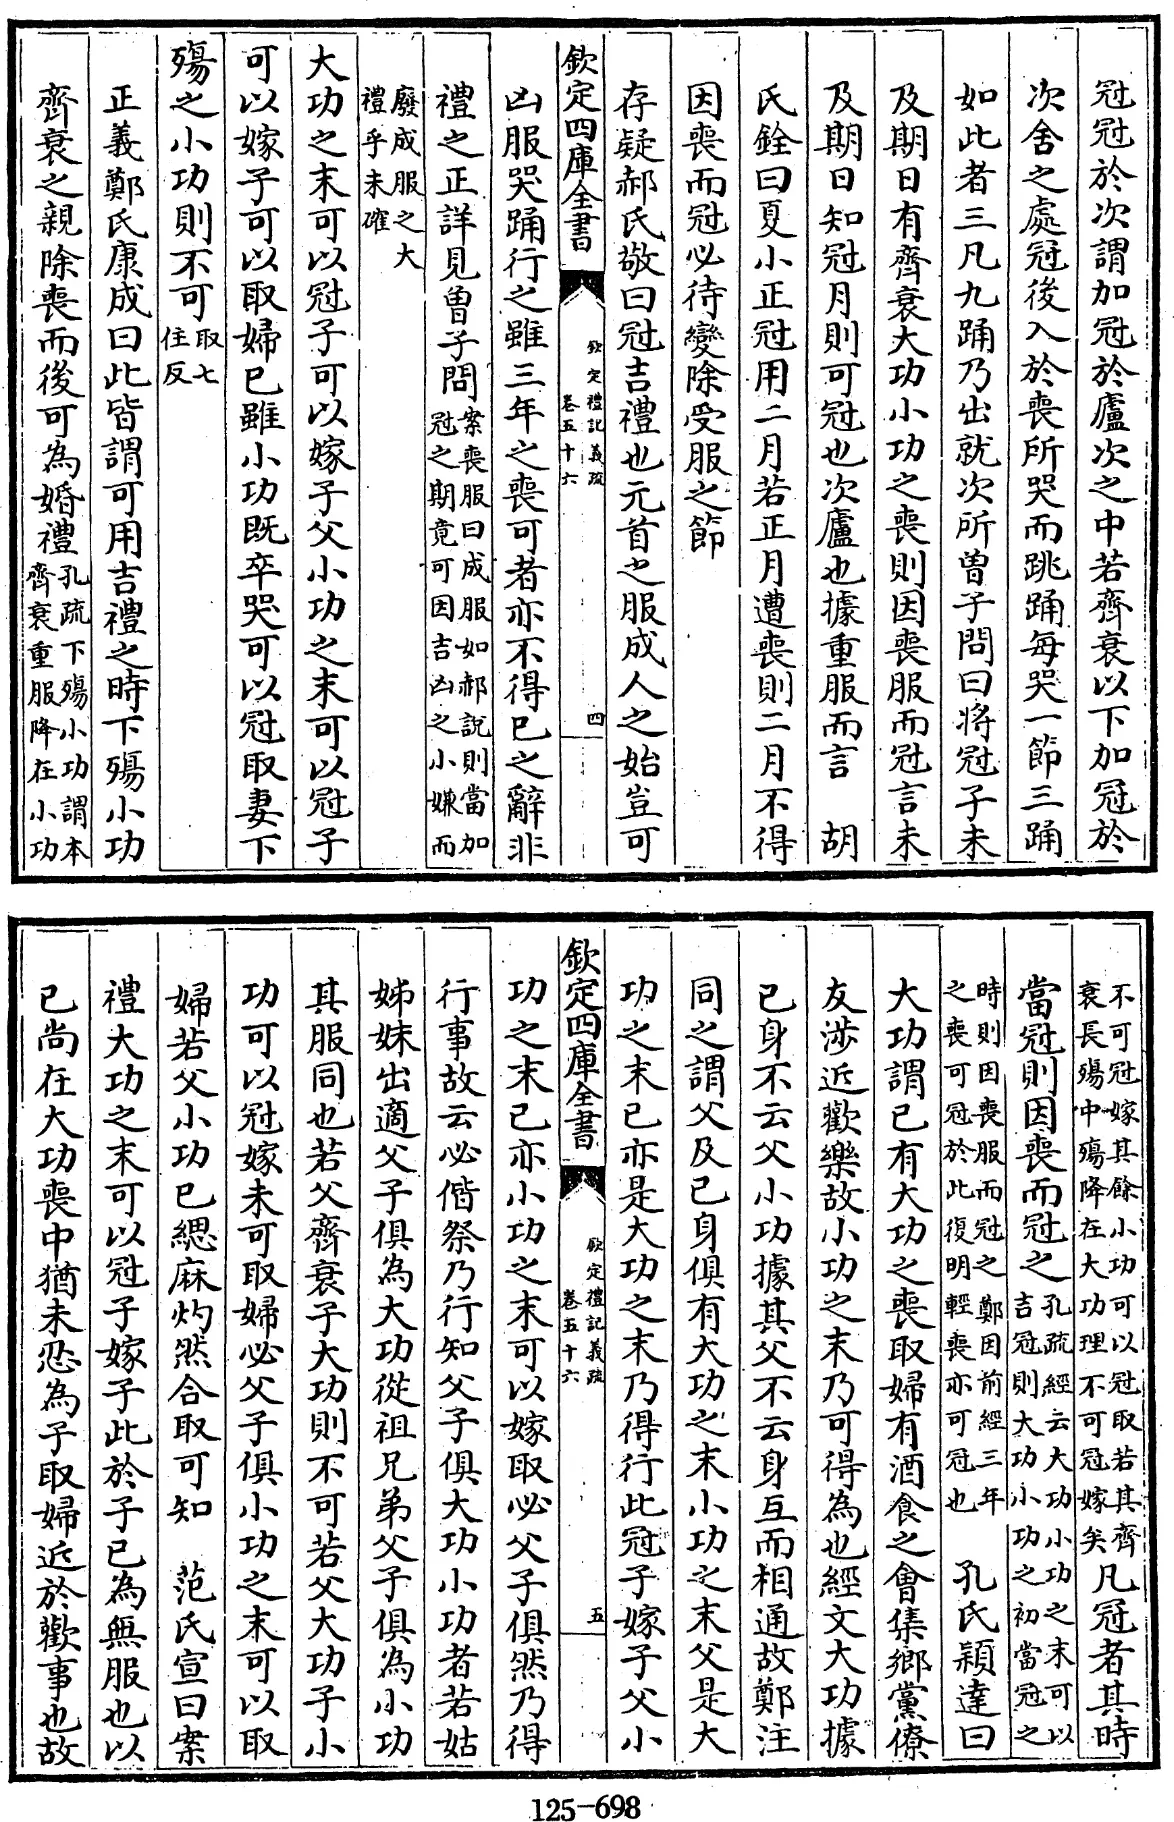 冠冠於次謂加冠於廬次之中若齊衰以下加冠於
次舍之處冠後入於喪所哭而跳踊每哭一節三踊
如此者三凡九踊乃出就次所曾子問曰將冠子未
及期日有齊衰大功小功之喪則因喪服而冠言未
及期日知冠月則可冠也次廬也據重服而言　胡
氏銓曰夏小正冠用二月若正月遭喪則二月不得
因喪而冠必待變除受服之節
存疑郝氏敬曰冠吉禮也元首之服成人之始豈可
欽定四庫全書
欽定禮記義疏
卷五十六
四
凶服哭踊行之雖三年之喪可者亦不得已之辭非
禮之正詳見曾子問案喪服曰成服如郝說則當加
冠之期竟可因吉凶之小嫌而
廢成服之大
禮乎未確
大功之末可以冠子可以嫁子父小功之末可以冠子
可以嫁子可以取婦已雖小功既卒哭可以冠取妻下
殤之小功則不可取七
住反
正義鄭氏康成曰此皆謂可用吉禮之時下殤小功
齊衰之親除喪而後可為婚禮孔疏下殤小功謂本
齊衰重服降在小功
不可冠嫁其餘小功可以冠取若其齊
衰長殤中殤降在大功理不可冠嫁矣凡冠者其時
當冠則因喪而冠之孔疏經云大功小功之末可以
吉冠則大功小功之初當冠之
時則因喪服而冠之鄭因前經三年
之喪可冠於此復明輕喪亦可冠也　孔氏穎達曰
大功謂已有大功之喪取婦有酒食之會集鄉黨僚
友涉近歡樂故小功之末乃可得為也經文大功據
已身不云父小功據其父不云身互而相通故鄭注
同之謂父及已身俱有大功之末小功之末父是大
功之末已亦是大功之末乃得行此冠子嫁子父小
欽定四庫全書
欽定禮記義疏
卷五十六
五
功之末已亦小功之末可以嫁取必父子俱然乃得
行事故云必偕祭乃行知父子俱大功小功者若姑
姊妹出適父子俱為大功從祖兄弟父子俱為小功
其服同也若父齊衰子大功則不可若父大功子小
功可以冠嫁未可取婦必父子俱小功之末可以取
婦若父小功已緦麻灼然合取可知　范氏宣曰案
禮大功之末可以冠子嫁子此於子已為無服也以
已尚在大功喪中猶未忍為子取婦近於歡事也故
125-698